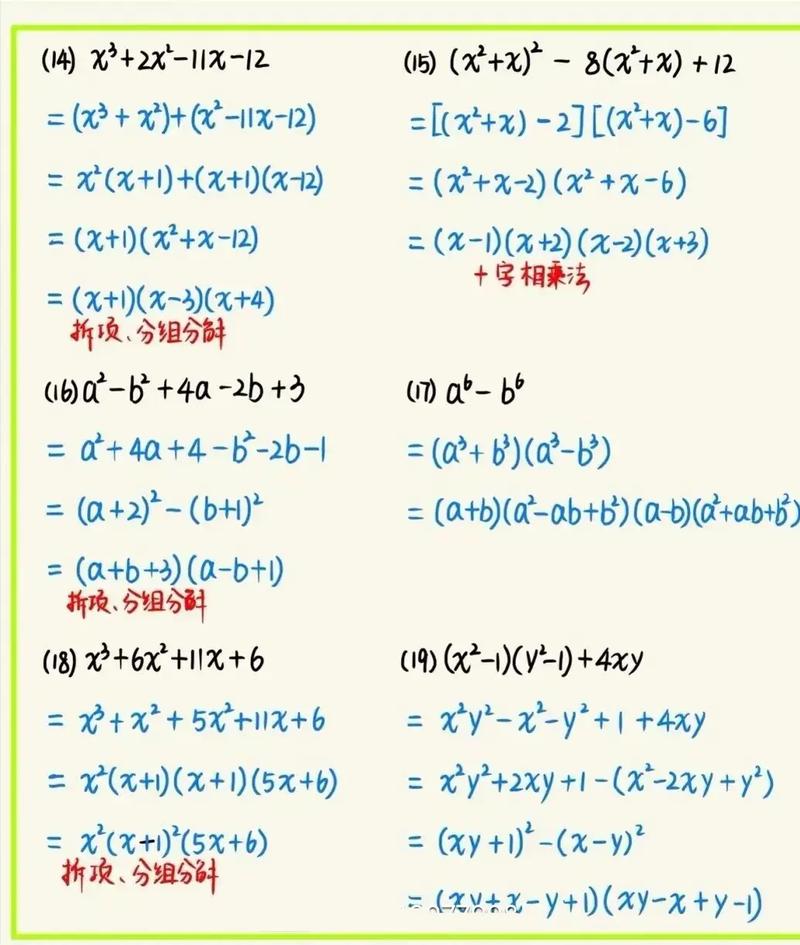 (14) x³+2x²-11x-12
=(x³+x²)+(x²-11x-12)
=x²(x+1)+(x+1)(x-12)
=(x+1)(x²+x-12)
=(x+1)(x-3)(x+4)
拆项、分组分解
(15) (x²+x)² - 8(x²+x)+12
=[(x²+x)-2][(x²+x)-6]
=(x²+x-2)(x²+x-6)
=(x-1)(x+2)(x-2)(x+3)
十字相乘法
(16) a²-b²+4a-2b+3
= a²+4a+4-b²-2b-1
=(a+2)²-(b+1)²
=(a+b+3)(a-b+1)
拆项、分组分解
(17) a⁶-b⁶
=(a³+b³)(a³-b³)
=(a+b)(a²-ab+b²)(a-b)(a²+ab+b²)
(18) x³+6x²+11x+6
= x³+x²+5x²+11x+6
= x²(x+1)(x+1)(5x+6)
= x²(x+1)²(5x+6)
拆项、分组分解
(19) (x²-1)(y²-1)+4xy
= x²y²-x²-y²+1+4xy
= x²y²+2xy+1-(x²-2xy+y²)
=(xy+1)²-(x-y)²
=(xy+x-y+1)(xy-x+y-1)